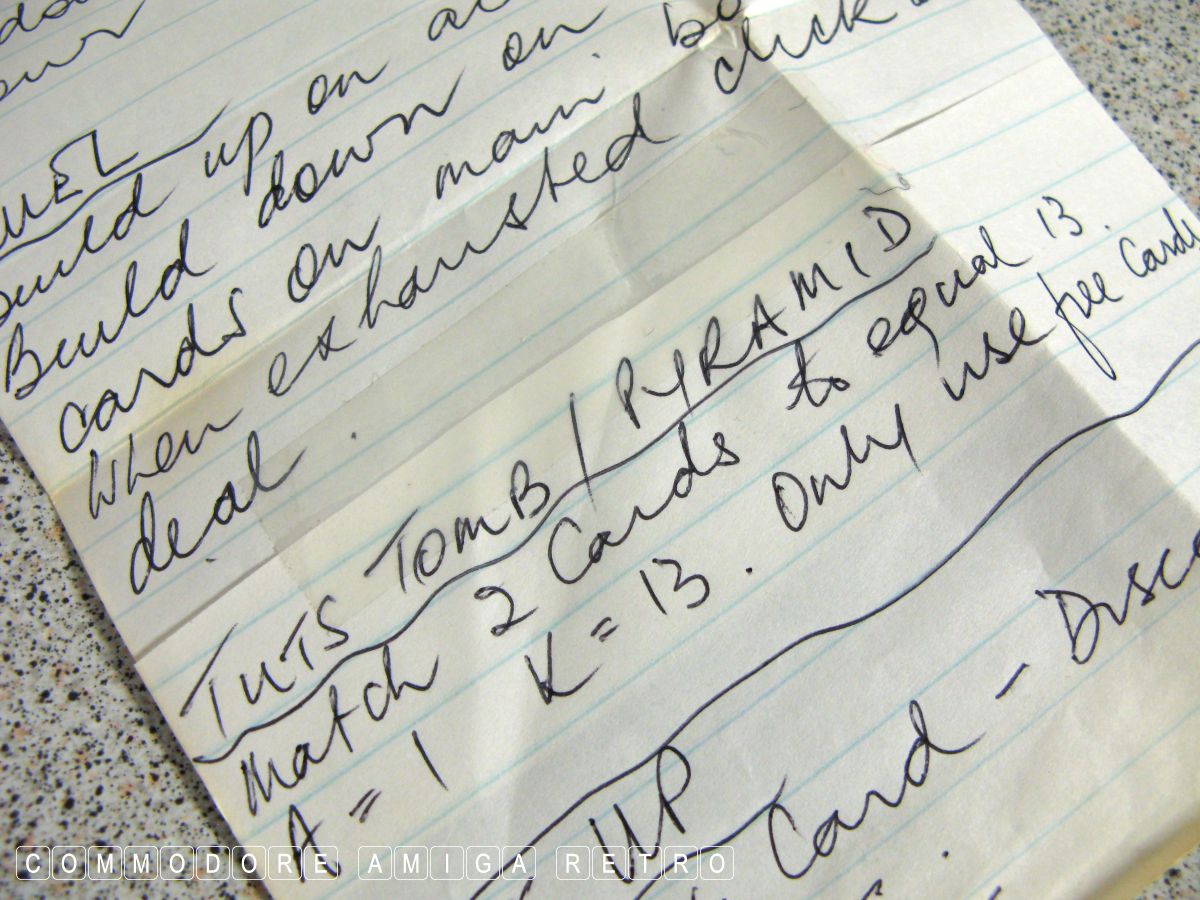 up on
Build down on
cards on main
When exhausted click
deal.
TUTS TOMB / PYRAMID
Match 2 Cards to equal 13.
A = 1 K = 13. Only use free Cards
UP
Card - Disc
COMMODORE AMIGA RETRO